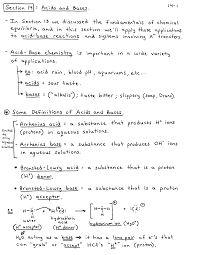 14-1
Section 14 | Acids and Bases.
• In Section 13 we discussed the fundamentals of chemical
equilibria, and in this section we'll apply those applications
to acid-base reactions and systems involving H⁺ transfers.
• Acid-Base chemistry is important in a wide variety
of applications.
↳ eg: acid rain, blood pH, aquariums, etc...
↳ acids = sour taste.
↳ bases = ("alkalis"); taste bitter; slippery (soap, Drano).
Some Definitions of Acids and Bases.
• Arrhenius acid = a substance that produces H⁺ ions
(protons) in aqueous solutions.
• Arrhenius base = a substance that produces OH⁻ ions
in aqueous solutions.
• Brønsted-Lowry acid = a substance that is a proton
(H⁺) donor.
• Brønsted-Lowry base = a substance that is a proton
(H⁺) acceptor.
water
(H⁺ acceptor)
hydrochloric
acid
(H⁺ donor)
hydronium ion (H₃O⁺)
H₂O acting as a base → it has a lone pair of e⁻'s that
can "grab" or "accept" HCl's "H⁺" ion (proton).